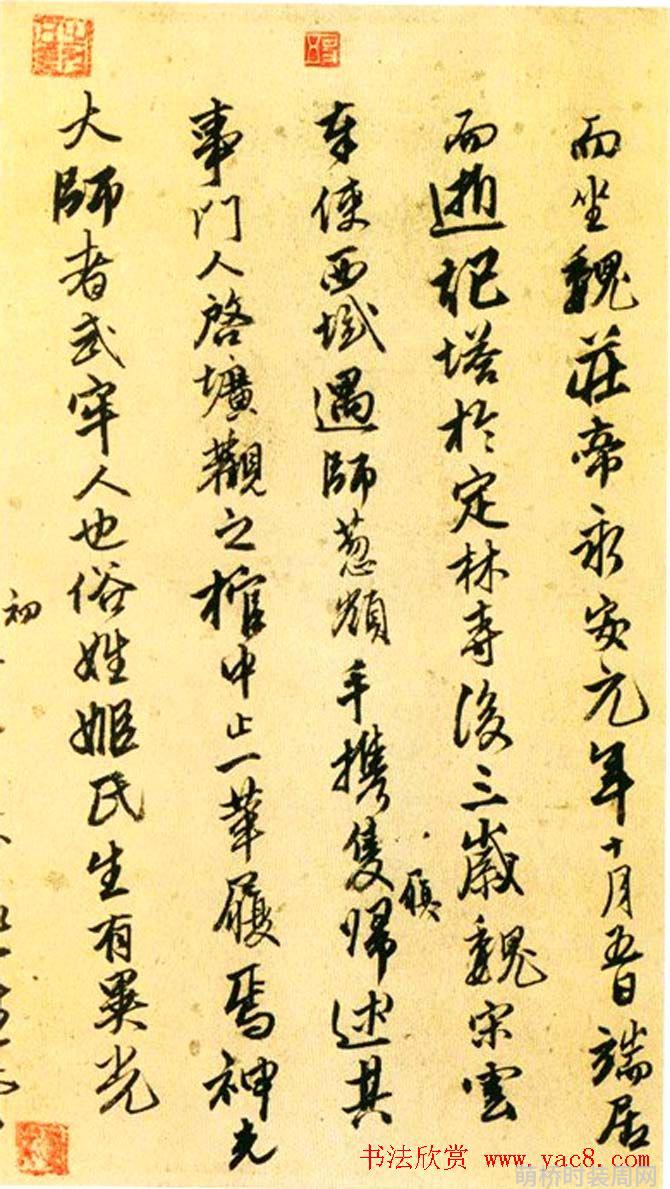 而坐魏莊帝永安元年十月五日端居
而逝起塔於定林寺後三歲魏宋雲
奉使西域遇師葱嶺手攜隻歸述其
履
事門人啓壙觀之棺中止一革履焉神光
大師者武牢人也俗姓姬氏生有異光
初
书法欣赏 www.yac8.com
萌桥时装周网